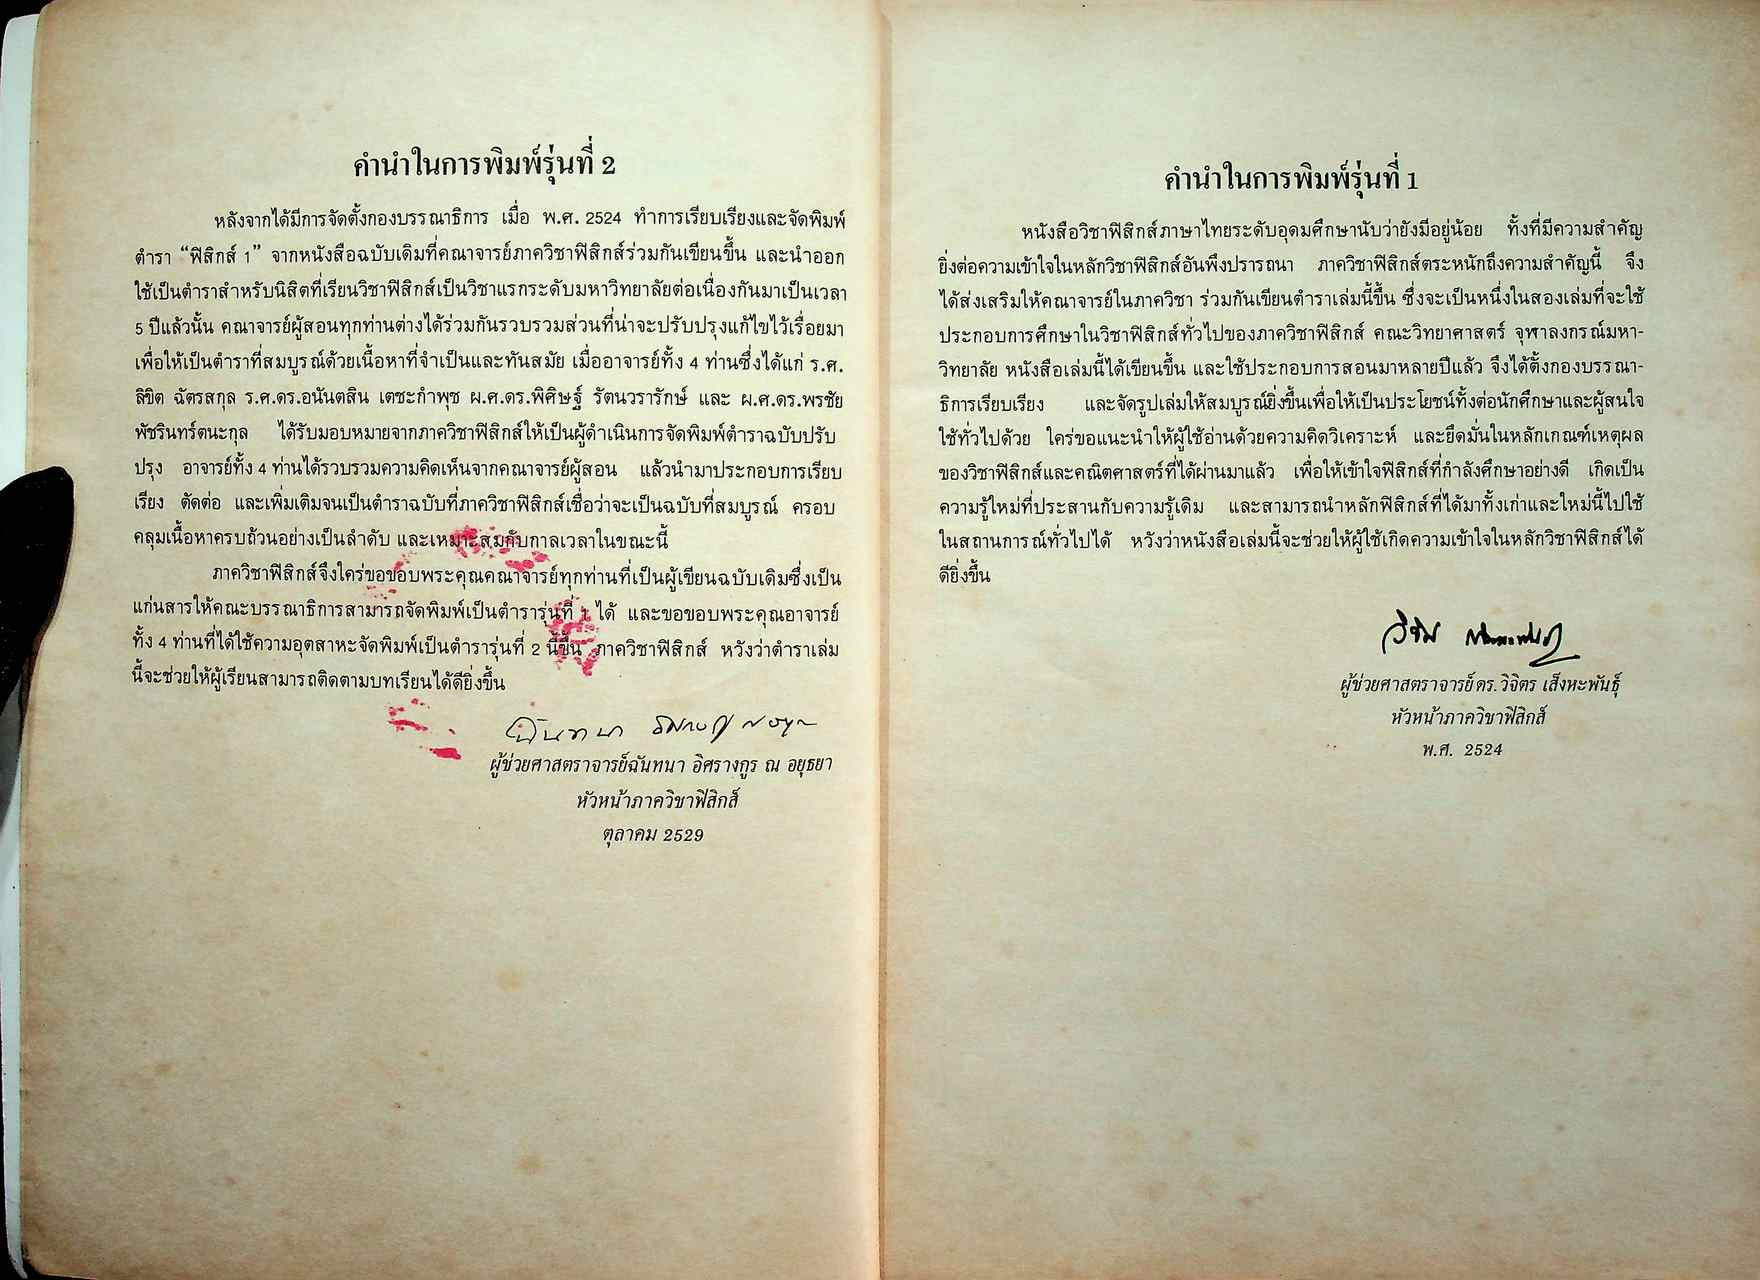 คำนำในการพิมพ์รุ่นที่ 2
หลังจากได้มีการจัดตั้งกองบรรณาธิการ เมื่อ พ.ศ. 2524 ทำการเรียบเรียงและจัดพิมพ์
ตำรา “ฟิสิกส์ 1” จากหนังสือฉบับเดิมที่คณาจารย์ภาควิชาฟิสิกส์ร่วมกันเขียนขึ้น และนำออก
ใช้เป็นตำราสำหรับนิสิตที่เรียนวิชาฟิสิกส์เป็นวิชาแรกระดับมหาวิทยาลัยต่อเนื่องกันมาเป็นเวลา
5 ปีแล้วนั้น คณาจารย์ผู้สอนทุกท่านต่างได้ร่วมกันรวบรวมส่วนที่น่าจะปรับปรุงแก้ไขไว้เรื่อยมา
เพื่อให้เป็นตำราที่สมบูรณ์ด้วยเนื้อหาที่จำเป็นและทันสมัย เมื่ออาจารย์ทั้ง 4 ท่านซึ่งได้แก่ ร.ศ.
ลิขิต ฉัตรสกุล ร.ศ.ดร.อนันตสิน เตชะกำพุช ผ.ศ.ดร.พิศิษฐ์ รัตนวรารักษ์ และ ผ.ศ.ดร.พรชัย
พัชรินทร์ตนะกุล ได้รับมอบหมายจากภาควิชาฟิสิกส์ให้เป็นผู้ดำเนินการจัดพิมพ์ตำราฉบับปรับ
ปรุง อาจารย์ทั้ง 4 ท่านได้รวบรวมความคิดเห็นจากคณาจารย์ผู้สอน แล้วนำมาประกอบการเรียบ
เรียง ตัดต่อ และเพิ่มเติมจนเป็นตำราฉบับที่ภาควิชาฟิสิกส์เชื่อว่าจะเป็นฉบับที่สมบูรณ์ ครอบ
คลุมเนื้อหาครบถ้วนอย่างเป็นลำดับ และเหมาะสมกับกาลเวลาในขณะนี้
ภาควิชาฟิสิกส์จึงใคร่ขอขอบพระคุณคณาจารย์ทุกท่านที่เป็นผู้เขียนฉบับเดิมซึ่งเป็น
แก่นสารให้คณะบรรณาธิการสามารถจัดพิมพ์เป็นตำรารุ่นที่ 1 ได้ และขอขอบพระคุณอาจารย์
ทั้ง 4 ท่านที่ได้ใช้ความอุตสาหะจัดพิมพ์เป็นตำรารุ่นที่ 2 นี้ขึ้น ภาควิชาฟิสิกส์ หวังว่าตำราเล่ม
นี้จะช่วยให้ผู้เรียนสามารถติดตามบทเรียนได้ดียิ่งขึ้น
ฉันทนา
ผู้ช่วยศาสตราจารย์ฉันทนา อิศรางกูร ณ อยุธยา
หัวหน้าภาควิชาฟิสิกส์
ตุลาคม 2529
คำนำในการพิมพ์รุ่นที่ 1
หนังสือวิชาฟิสิกส์ภาษาไทยระดับอุดมศึกษานับว่ายังมีอยู่น้อย ทั้งที่มีความสำคัญ
ยิ่งต่อความเข้าใจในหลักวิชาฟิสิกส์อันพึงปรารถนา ภาควิชาฟิสิกส์ตระหนักถึงความสำคัญนี้ จึง
ได้ส่งเสริมให้คณาจารย์ในภาควิชา ร่วมกันเขียนตำราเล่มนี้ขึ้น ซึ่งจะเป็นหนึ่งในสองเล่มที่จะใช้
ประกอบการศึกษาในวิชาฟิสิกส์ทั่วไปของภาควิชาฟิสิกส์ คณะวิทยาศาสตร์ จุฬาลงกรณ์มหา-
วิทยาลัย หนังสือเล่มนี้ได้เขียนขึ้น และใช้ประกอบการสอนมาหลายปีแล้ว จึงได้ตั้งกองบรรณา-
ธิการเรียบเรียง และจัดรูปเล่มให้สมบูรณ์ยิ่งขึ้นเพื่อให้เป็นประโยชน์ทั้งต่อนักศึกษาและผู้สนใจ
ใช้ทั่วไปด้วย ใคร่ขอแนะนำให้ผู้ใช้อ่านด้วยความคิดวิเคราะห์ และยึดมั่นในหลักเกณฑ์เหตุผล
ของวิชาฟิสิกส์และคณิตศาสตร์ที่ได้ผ่านมาแล้ว เพื่อให้เข้าใจฟิสิกส์ที่กำลังศึกษาอย่างดี เกิดเป็น
ความรู้ใหม่ที่ประสานกับความรู้เดิม และสามารถนำหลักฟิสิกส์ที่ได้มาทั้งเก่าและใหม่นี้ไปใช้
ในสถานการณ์ทั่วไปได้ หวังว่าหนังสือเล่มนี้จะช่วยให้ผู้ใช้เกิดความเข้าใจในหลักวิชาฟิสิกส์ได้
ดียิ่งขึ้น
ผู้ช่วยศาสตราจารย์ ดร. วิจิตร เส็งหะพันธุ์
หัวหน้าภาควิชาฟิสิกส์
พ.ศ. 2524